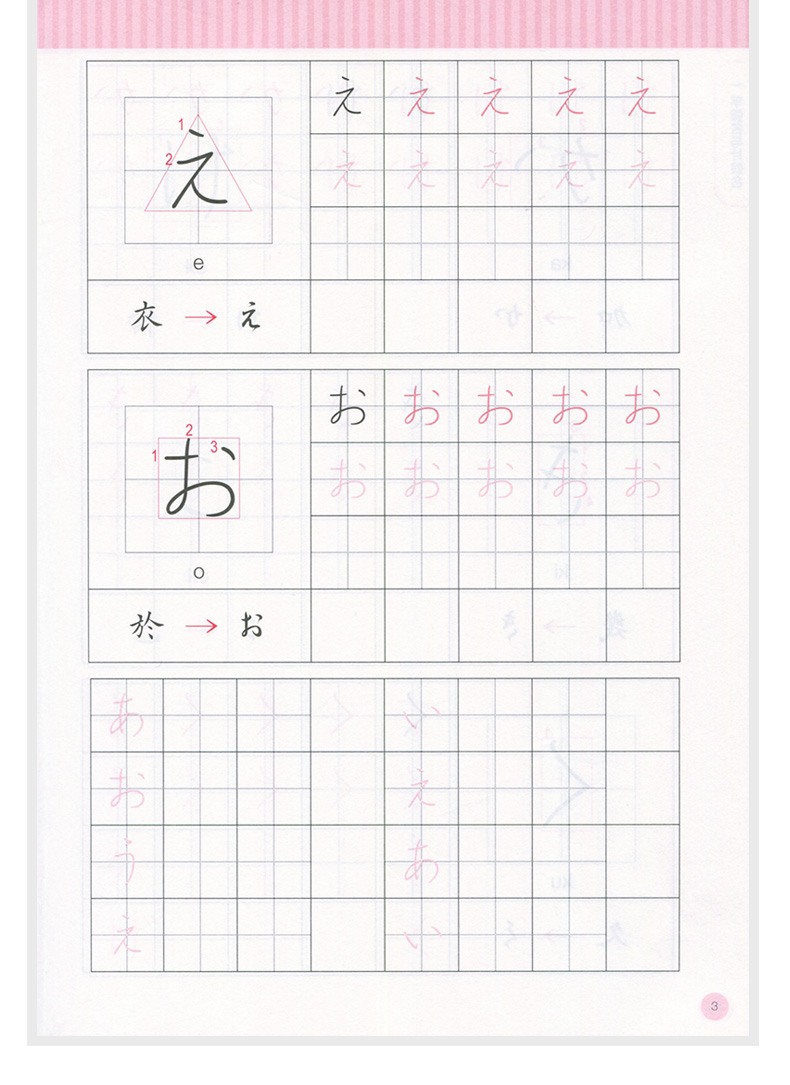 1 2 え え え え え え
え え え え え
e
衣 → え
1 2 3 お お お お お お
お お お お お
o
於 → お
あ い
お え
う あ
え い
3